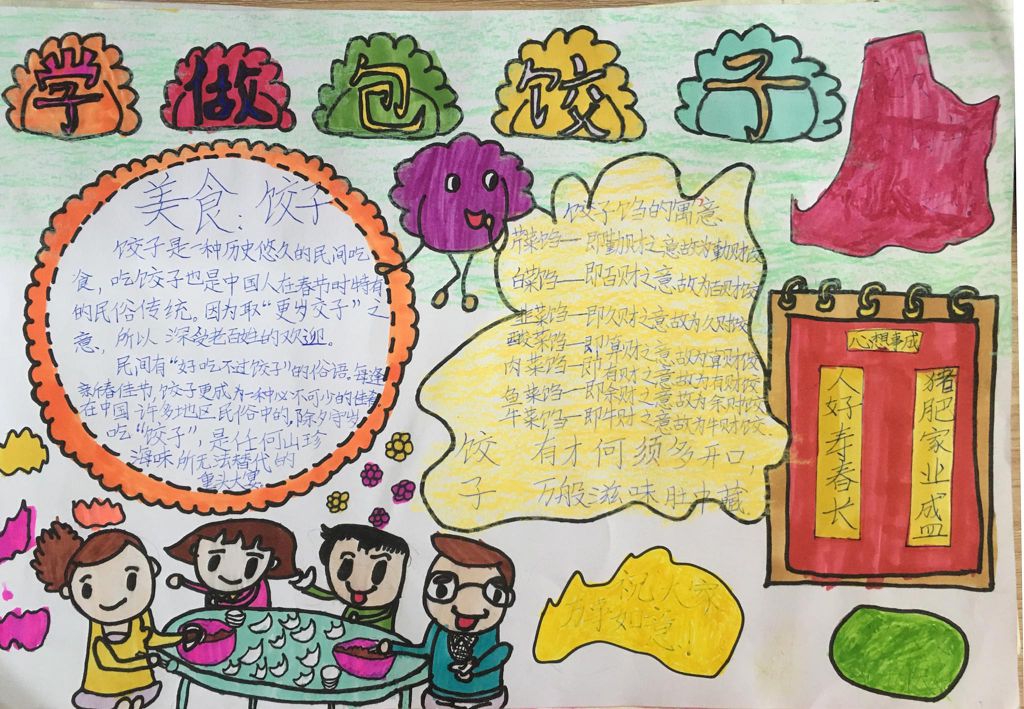 学做包饺子
美食:饺子
饺子是一种历史悠久的民间吃
食，吃饺子也是中国人在春节时特有
的民俗传统。因为取“更岁交子”之
意，所以深受老百姓的欢迎。
民间有“好吃不过饺子”的俗语。每逢
新春佳节,饺子更成为一种必不可少的佳肴
在中国许多地区民俗中的,除夕守岁
吃“饺子”，是任何山珍
海味所无法替代的
重头大宴
饺子馅的寓意
芹菜馅—即勤财之意故为勤财饺
白菜馅—即百财之意故为百财饺
韭菜馅—即久财之意故为久财饺
酸菜馅—即算财之意故为算财饺
肉菜馅—即有财之意故为有财饺
鱼菜馅—即余财之意故为余财饺
牛菜馅—即牛财之意故为牛财饺
饺子
有才何须多开口，
万般滋味肚中藏
心想事成
人好寿春长
猪肥家业盛
祝大家
万事如意!